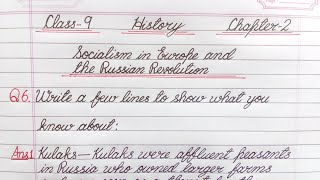 Class-9 History Chapter-2
Socialism in Europe and
the Russian Revolution
Q6. Write a few lines to show what you
know about:
Ans1 Kulaks – Kulaks were affluent peasants
in Russia who owned larger farms